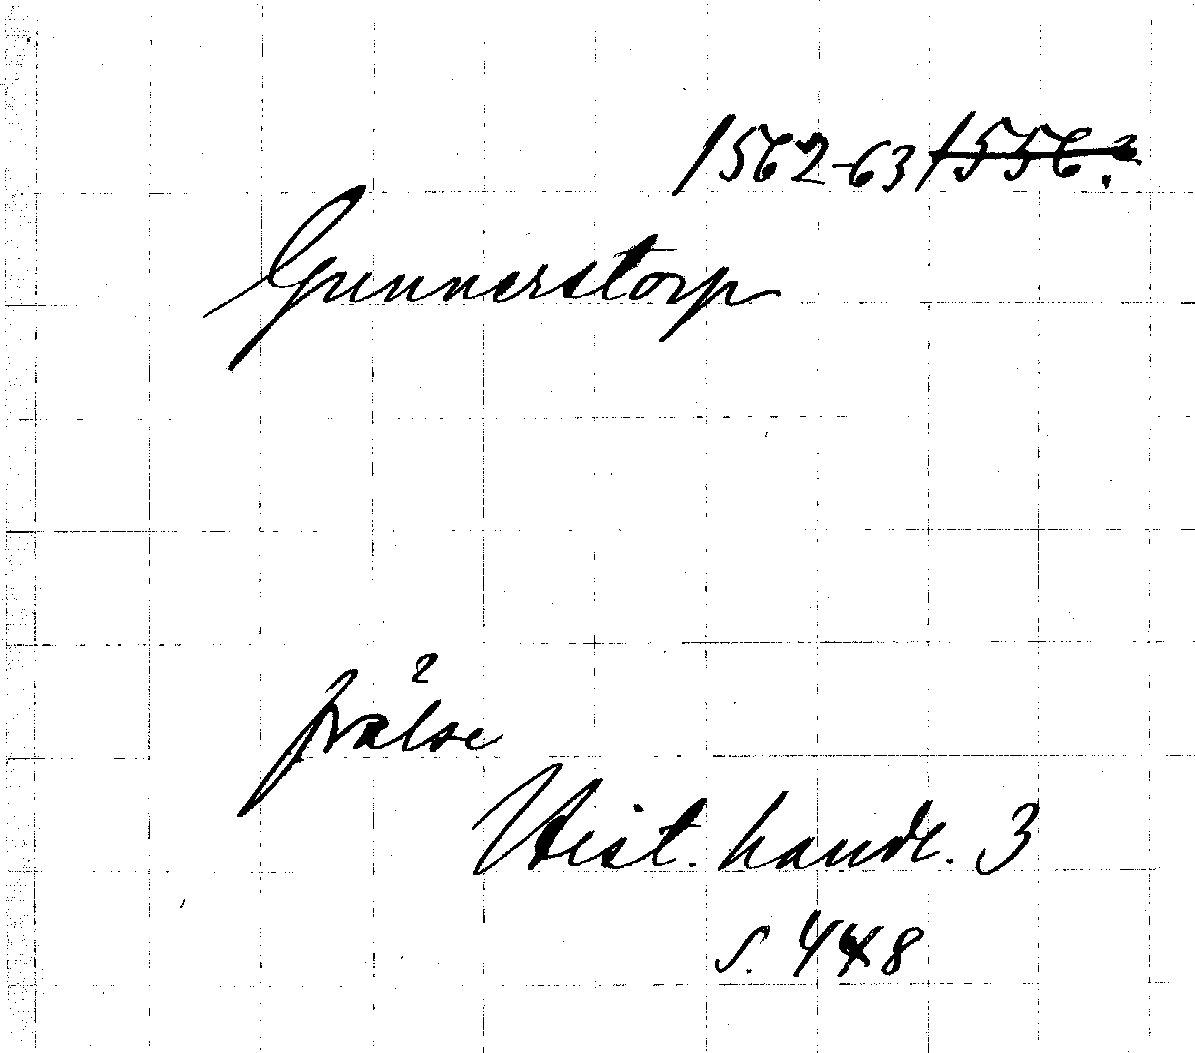 1562-63 1556?
Gunnerstorp
?
frälse
Hist. handl. 3
s. 448